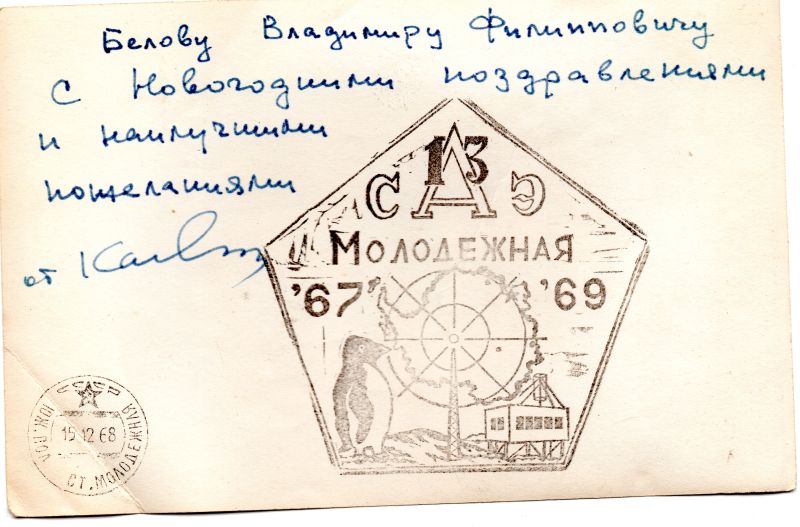 Белову Владимиру Филипповичу
с Новогодними поздравлениями
и наилучшими
пожеланиями
от
13
САЭ
МОЛОДЕЖНАЯ
'67 '69
СССР
15 12 68
ЮЖ. ПОЛ.
СТ. МОЛОДЕЖНАЯ